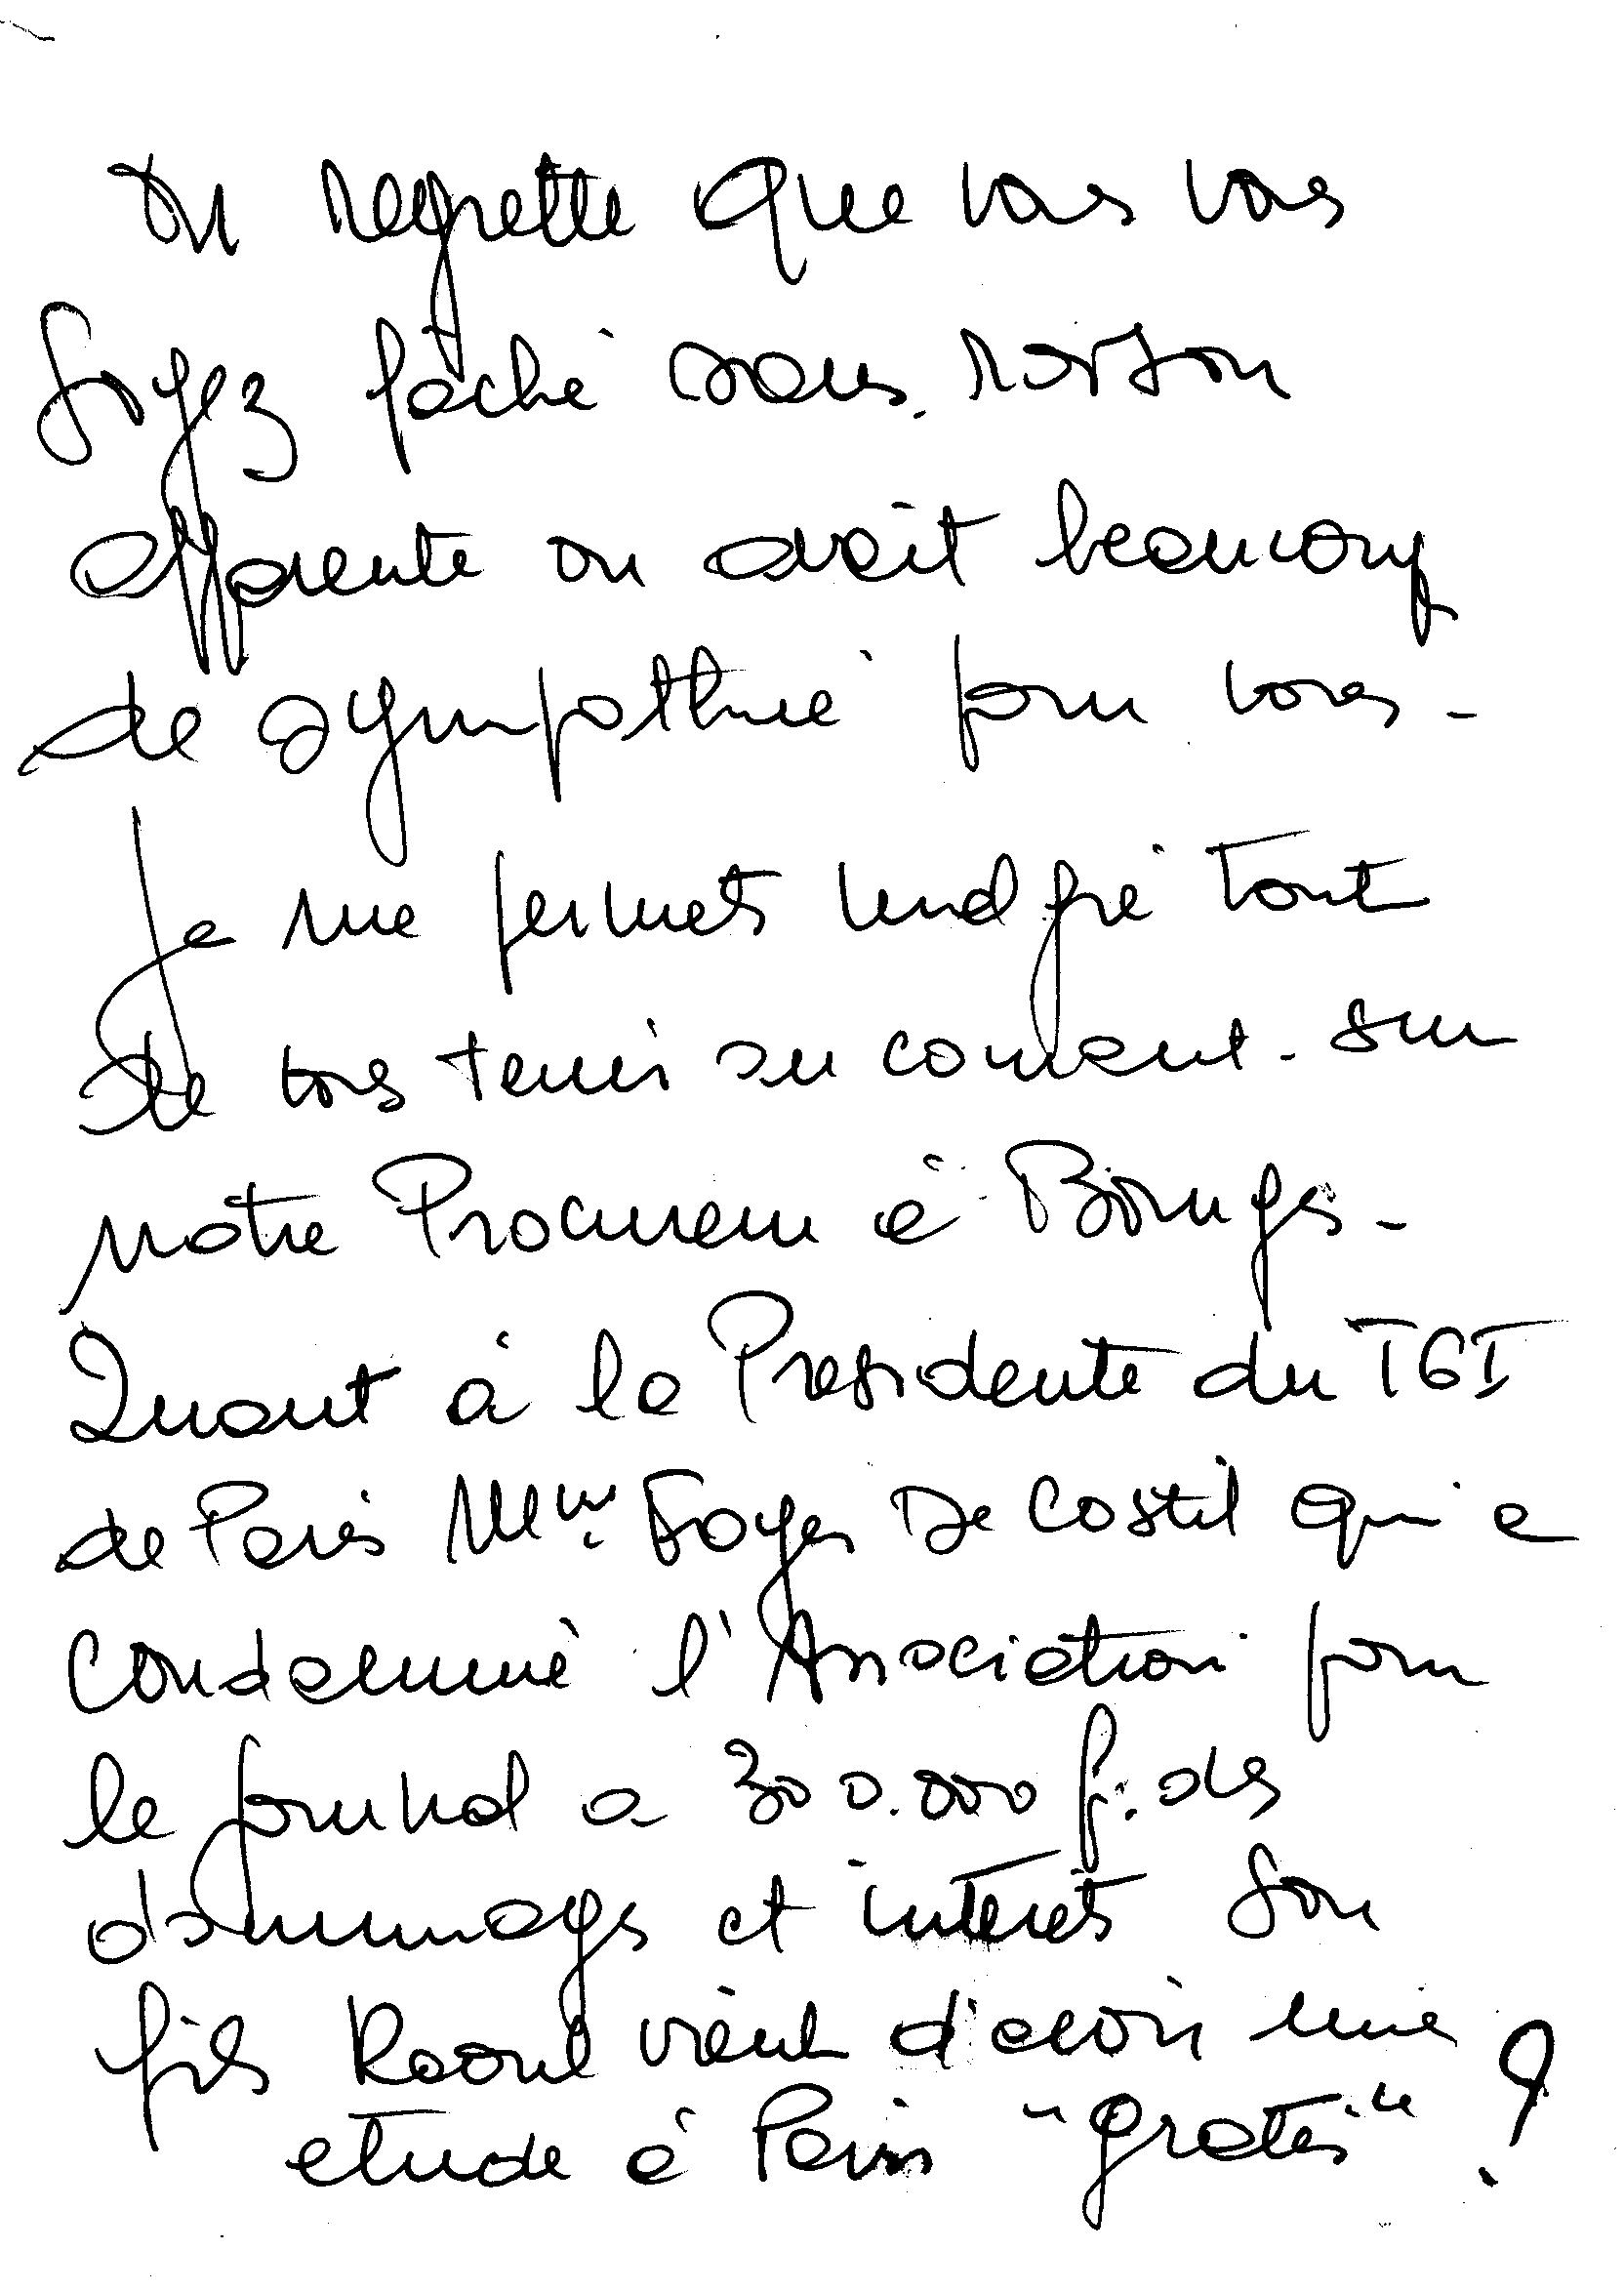 On regrette que vous vous
soyez fâché sans raison
apparente on avait beaucoup
de sympathie pour vous -
Je me permets malgré tout
de vous tenir au courant - sur
notre Procureur à Bourges -
Quant à la Presidente du TGI
de Paris Mme Foyer De Costil qui a
condamné l'Association pour
le journal a 300.000 f. des
dommages et intérêts son
fils Raoul vient d'avoir une
etude à Paris "gratis" ?